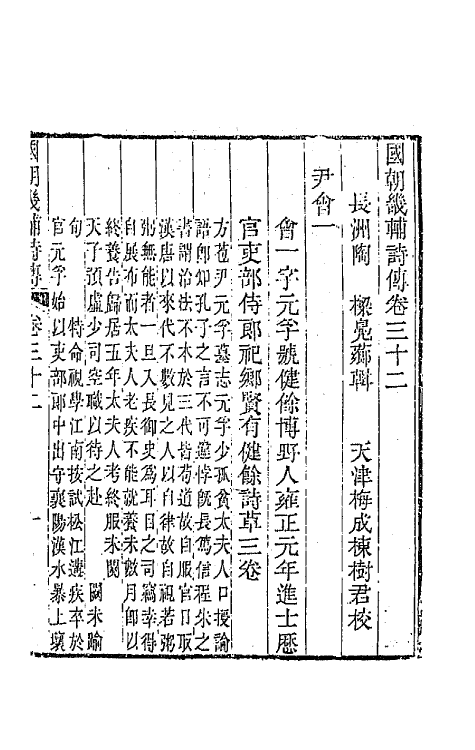 國朝畿輔詩傳卷三十二
長洲陶　樑鳧薌輯　天津梅成棟樹君校
尹會一
會一字元孚號健餘博野人雍正元年進士歷
官吏部侍郎祀鄉賢有健餘詩草三卷
方苞尹元孚墓志元孚少孤貧太夫人口授論
語卽知孔子之言不可違悖旣長篤信程朱之
書謂治法不本於三代皆苟道故自服官日取
漢唐以來代不數見之人以自律故自視若粥
粥無能者一旦入長御史爲耳目之司竊幸得
自展布而太夫人老疾不能就養未數月卽以
終養告歸居五年太夫人考終服未闋
天子預虛少司空職以待之赴　闕未踰
旬　特命視學江南按試松江遘疾卒於
官元孚始以吏部郎中出守襄陽漢水暴上壞
國朝畿輔詩傳　卷三十二　一